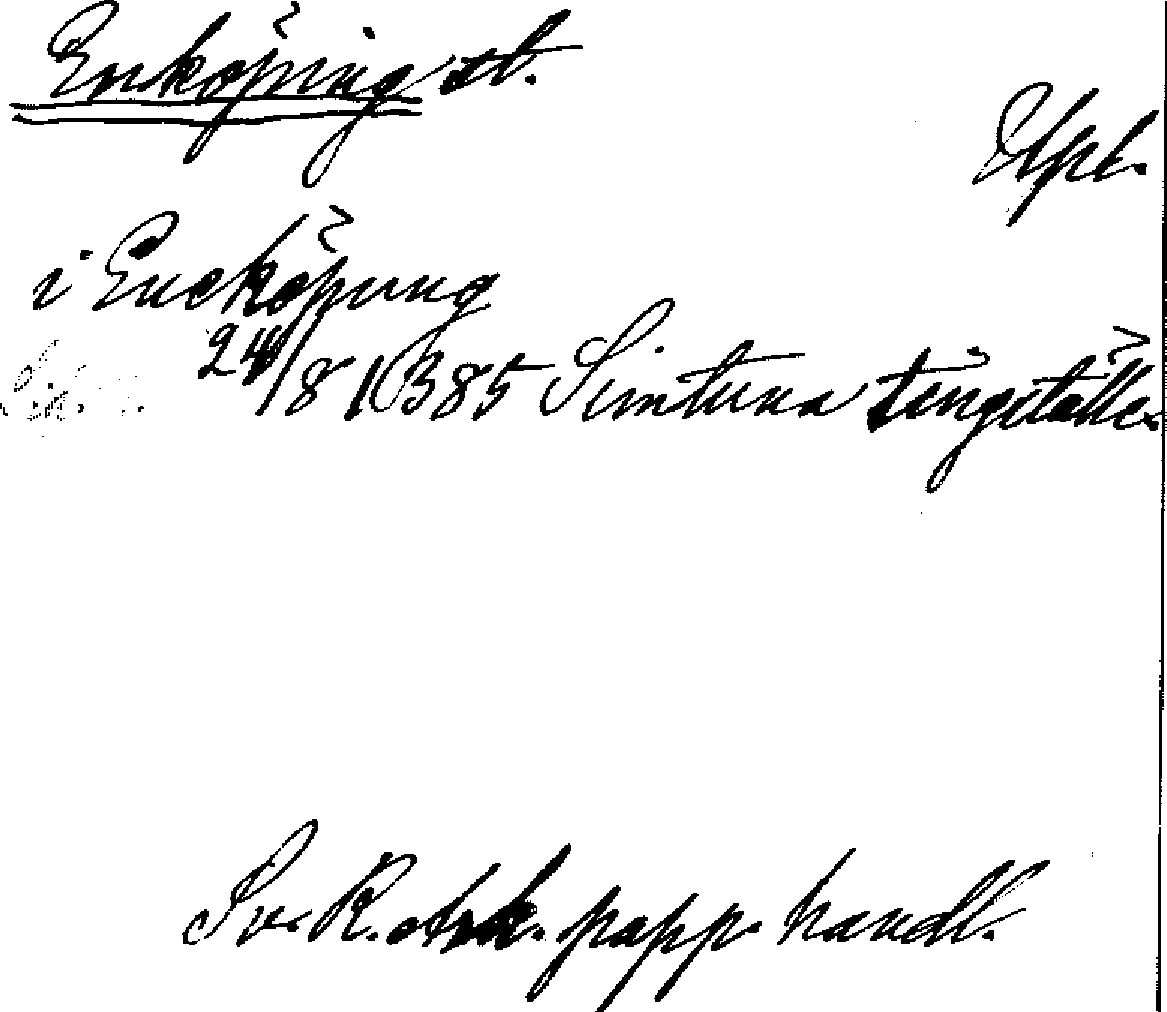 Enköping st.
Upl.
i Encköpung
24/8 1385 Simtuna tingställe
Sv. R. ark. papp. handl.